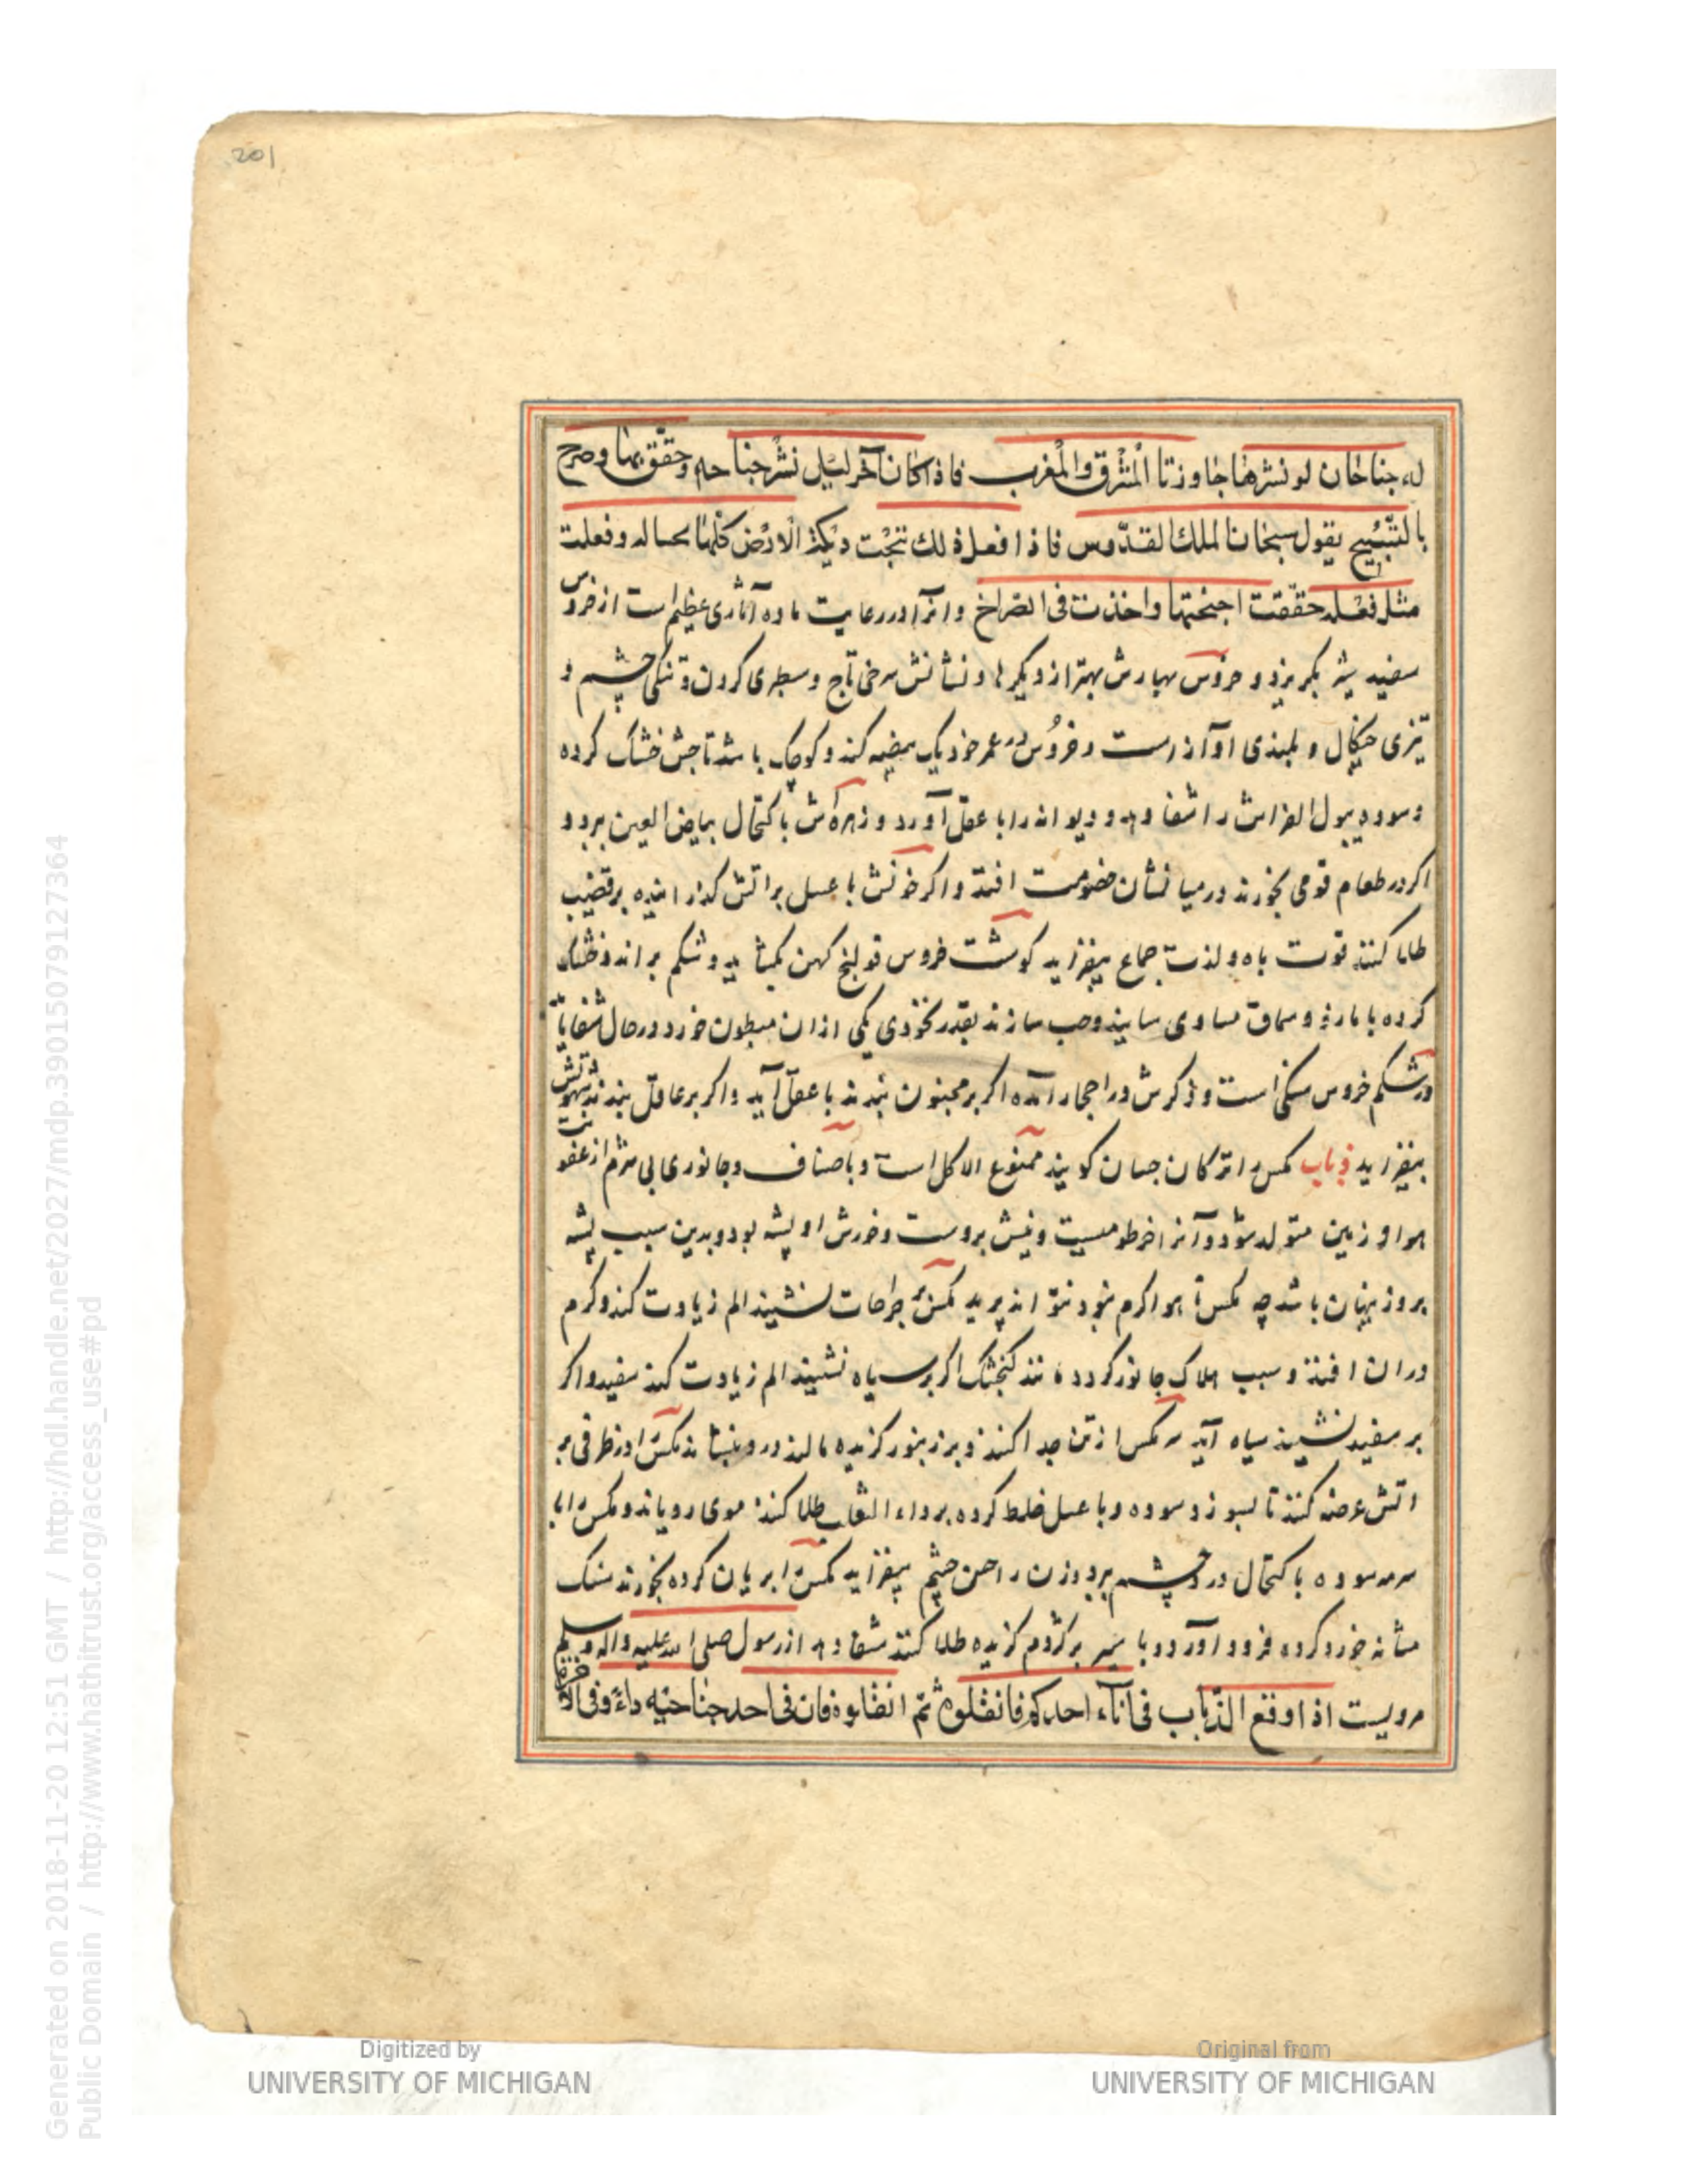 201
له جناحان لو نشرهما جاوزتا المشرق والمغرب فاذا کان آخر لیل نشر جناحه وحقق بهما وصرح
بالتسبیح یقول سبحان الملک القدوس فاذا فعل ذلک دیکة الارض کلها وفعلت
مثل فعله حققت اجنحتها واخذت فی الصراخ وانرا در رعایت ماده آثاری عظیم است از خروس
سفید بگریزد و خروس بهترا ز دیگرها و نشانش سرخی تاج و سطبری کردن و تنکی چشم و
تیزی چنکال و بلندی آواز است و خروس در عمر خود یک بیضه کند و کوچک باشد تاجش خشک کرده
وسوده ببول الفراش را شفا دهد و دیوانه را با عقل آورد و زهره‌اش باکتحال بیاض العین برد و
اکر در طعام قومی بخورند در میانشان خصومت افتد و اکر خونش با عسل بر اتش کذرانیده بر قضیب
طلا کنند قوت باه و لذت جماع بیفزاید کوشت خروس قولنج کهن بکشاید و شکم براند و خشک
کرده با مازو و سماق مساوی سایند وحب سازند بقدر نخودی یکی ازان مبطون خورد در حال شفا یابد
در شکم خروس سنکی است و ذکرش در احجار آمده اکر بر مجنون بندند با عقل آید واکر بر عاقل بندند شهوتش
بیفزاید ذباب مکس ترکان کویند ممنوع الاکل است و باصناف وجانوری بی شرم از عفونت
هوا و زمین متولد شود و آنرا خرطومیست ونیش بروست وخورش او پشه بود و بدین سبب پشه
بروز پنهان باشد چه مکس تا هوا کرم نبود نتواند پرید مکس بر جراحات نشیند الم زیادت کند و کرم
دران افتد و سبب هلاک جانور کردد کنجشک اکر بر سیاه نشیند الم زیادت کند سفید واکر
بر سفید نشیند سیاه آید سر مکس از تن جدا کنند و بر زنبور کزیده مالند درد بنشاند مکس را در ظرفی بر
اتش عرضه کنند تا بسوزد سوده و با عسل خلط کرده بر داء الثعلب طلا کنند موی رویاند و مکس را با
سرمه سوده باکتحال درد چشم برد وزن را حسن چشم بیفزاید مکس را بریان کرده بخورند سنک
مثانه خورد کرده فرود آورد و با سیر بر کژدم کزیده طلا کنند شفا دهد از رسول صلی الله علیه واله وسلم
مرویست اذا وقع الذباب فی اناء احدکم فانقلوه ثم انقلوه فان فی احد جناحیه داء وفی الآخر
Digitized by
UNIVERSITY OF MICHIGAN
Original from
UNIVERSITY OF MICHIGAN
Generated on 2018-11-20 12:51 GMT / http://hdl.handle.net/2027/mdp.39015079127364
Public Domain / http://www.hathitrust.org/access_use#pd